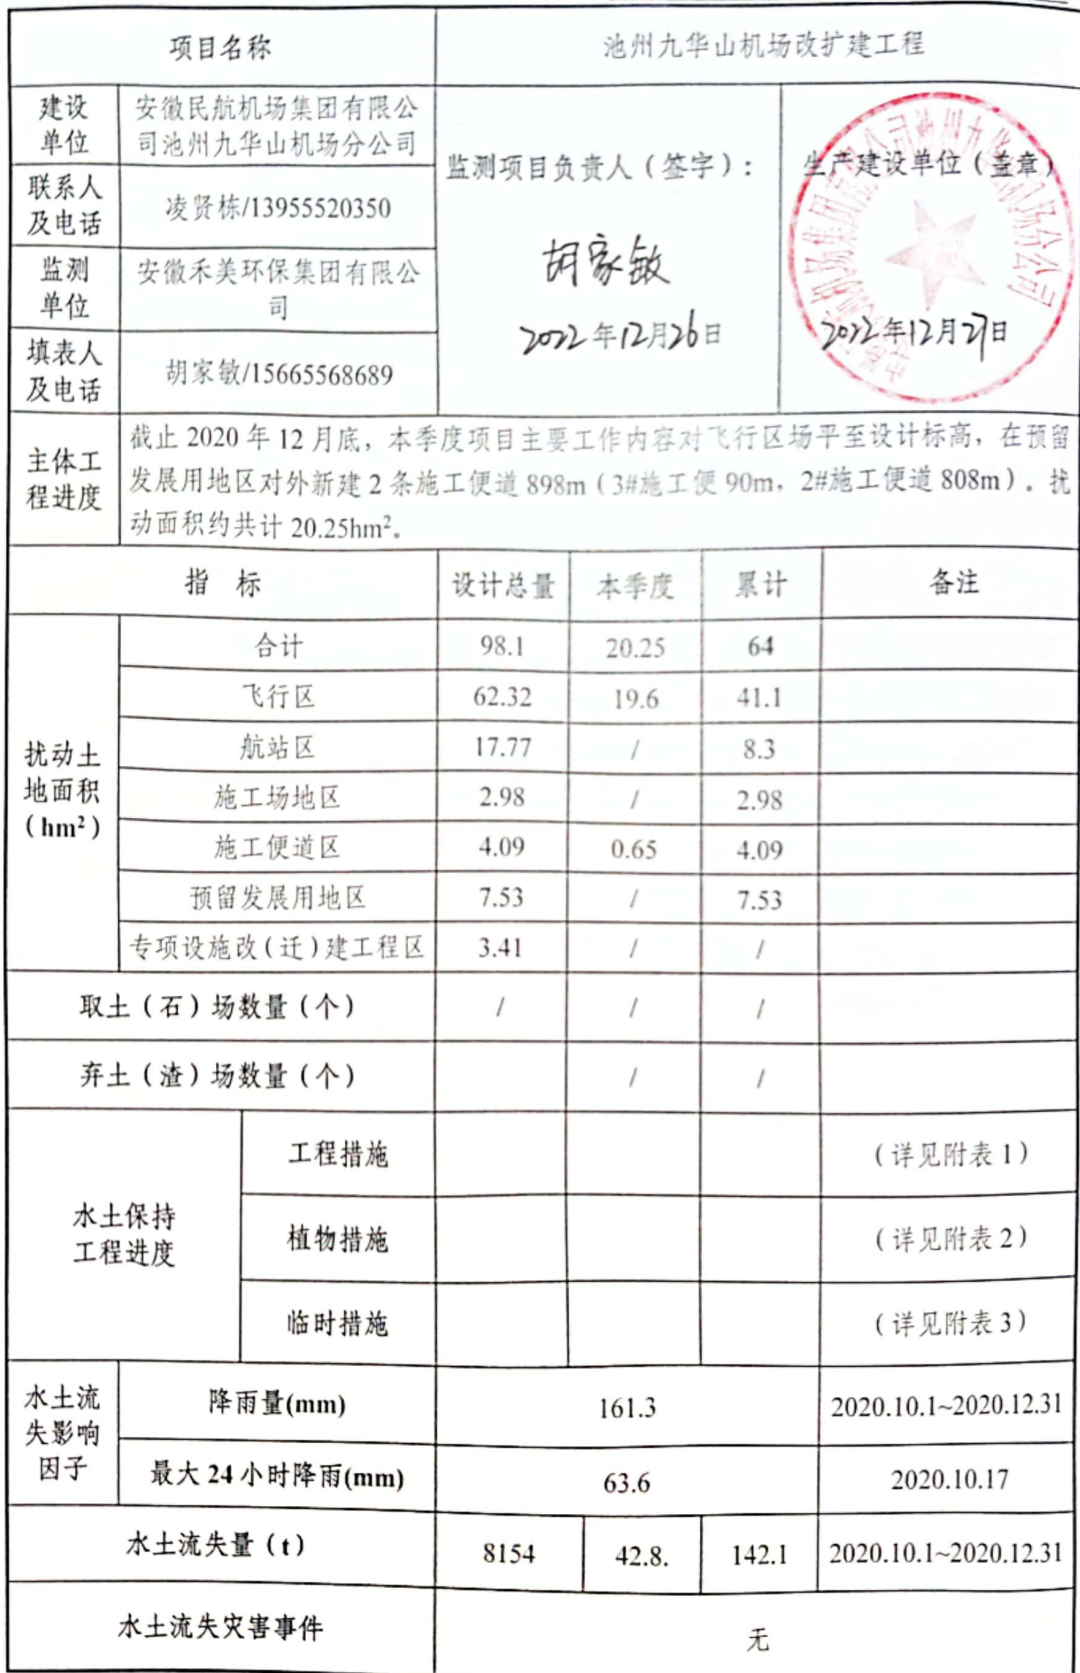 项目名称
池州九华山机场改扩建工程
建设
单位
安徽民航机场集团有限公
司池州九华山机场分公司
联系人
及电话
凌贤栋/13955520350
监测
单位
安徽禾美环保集团有限公
司
填表人
及电话
胡家敏/15665568689
监测项目负责人（签字）：
胡家敏
2022年12月26日
生产建设单位（盖章）
2022年12月27日
主体工
程进度
截止 2020 年 12 月底，本季度项目主要工作内容对飞行区场平至设计标高，在预留
发展用地区对外新建 2 条施工便道 898m（3#施工便 90m，2#施工便道 808m）。扰
动面积约共计 20.25hm²。
指 标 设计总量 本季度 累计 备注
扰动土
地面积
（hm²）
合计 98.1 20.25 64
飞行区 62.32 19.6 41.1
航站区 17.77 / 8.3
施工场地区 2.98 / 2.98
施工便道区 4.09 0.65 4.09
预留发展用地区 7.53 / 7.53
专项设施改（迁）建工程区 3.41 / /
取土（石）场数量（个） / / /
弃土（渣）场数量（个） / /
水土保持
工程进度
工程措施 （详见附表 1）
植物措施 （详见附表 2）
临时措施 （详见附表 3）
水土流
失影响
因子
降雨量(mm) 161.3 2020.10.1~2020.12.31
最大 24 小时降雨(mm) 63.6 2020.10.17
水土流失量（t） 8154 42.8. 142.1 2020.10.1~2020.12.31
水土流失灾害事件 无